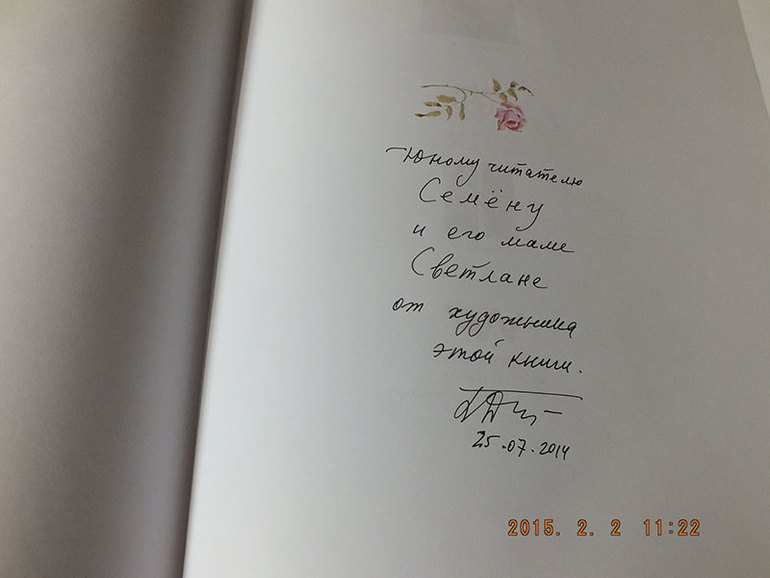 Юному читателю
Семёну
и его маме
Светлане
от художника
этой книги.
25.07.2014
2015. 2. 2 11:22